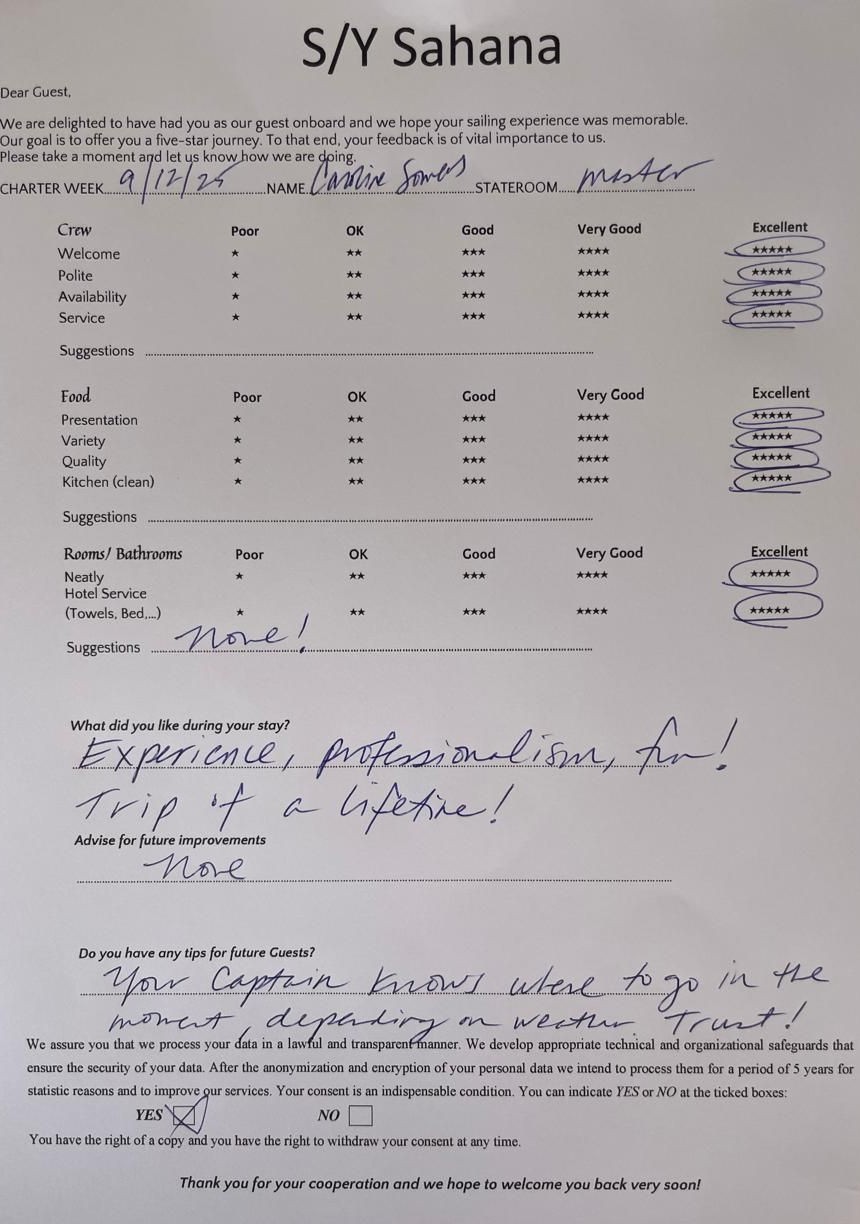 S/Y Sahana
Dear Guest,
We are delighted to have had you as our guest onboard and we hope your sailing experience was memorable.
Our goal is to offer you a five-star journey. To that end, your feedback is of vital importance to us.
Please take a moment and let us know how we are doing.
CHARTER WEEK 9/12/25 NAME Caroline Somers STATEROOM master
Crew Poor OK Good Very Good Excellent
Welcome ★ ★★ ★★★ ★★★★ ★★★★★
Polite ★ ★★ ★★★ ★★★★ ★★★★★
Availability ★ ★★ ★★★ ★★★★ ★★★★★
Service ★ ★★ ★★★ ★★★★ ★★★★★
Suggestions
Food Poor OK Good Very Good Excellent
Presentation ★ ★★ ★★★ ★★★★ ★★★★★
Variety ★ ★★ ★★★ ★★★★ ★★★★★
Quality ★ ★★ ★★★ ★★★★ ★★★★★
Kitchen (clean) ★ ★★ ★★★ ★★★★ ★★★★★
Suggestions
Rooms/ Bathrooms Poor OK Good Very Good Excellent
Neatly ★ ★★ ★★★ ★★★★ ★★★★★
Hotel Service
(Towels, Bed,...) ★ ★★ ★★★ ★★★★ ★★★★★
Suggestions None!
What did you like during your stay?
Experience, professionalism, fun!
Trip of a lifetime!
Advise for future improvements
None
Do you have any tips for future Guests?
Your Captain knows where to go in the
moment, depending on weather. Trust!
We assure you that we process your data in a lawful and transparent manner. We develop appropriate technical and organizational safeguards that
ensure the security of your data. After the anonymization and encryption of your personal data we intend to process them for a period of 5 years for
statistic reasons and to improve our services. Your consent is an indispensable condition. You can indicate YES or NO at the ticked boxes:
YES NO
You have the right of a copy and you have the right to withdraw your consent at any time.
Thank you for your cooperation and we hope to welcome you back very soon!